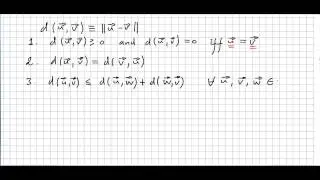 d(u⃗, v⃗) ≡ ‖u⃗ - v⃗‖
1. d(u⃗, v⃗) ≥ 0 and d(u⃗, v⃗) = 0 iff u⃗ = v⃗
2. d(u⃗, v⃗) = d(v⃗, u⃗)
3. d(u⃗, v⃗) ≤ d(u⃗, w⃗) + d(w⃗, v⃗) ∀ u⃗, v⃗, w⃗ ∈